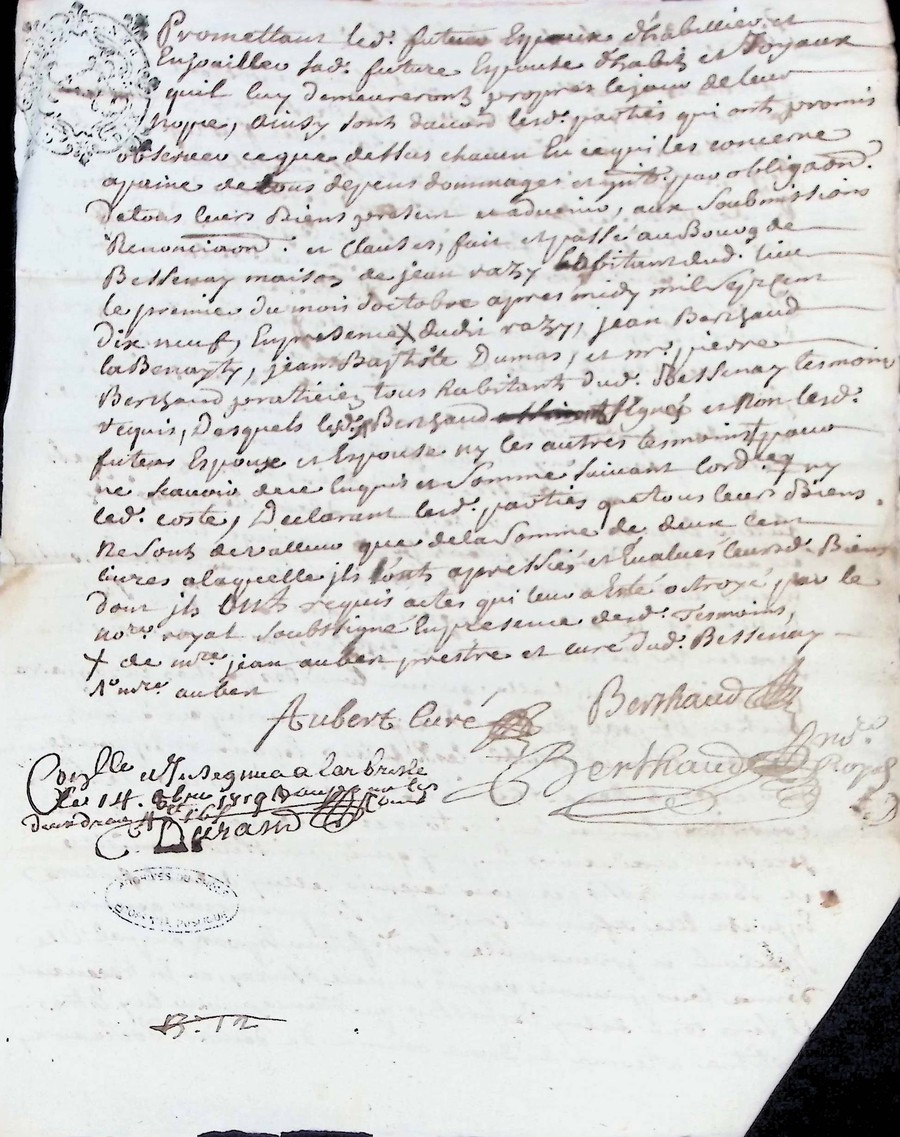 Promettant led. futeur Espoux d'habillier et
Enjoailler sad. future Espouse d'habits et Joyaux
quil luy demeureront propres le jour de leur
nopce, Ainsy sont daccord lesd. parties qui ont promis
observer ceque dessus chacun En ce qui les concerne
apaine de tous depens dommages et par obligaon.
de tous leurs Biens present et advenir, aux Soubmissions
Renonciaon. et Clauses, fait et passé au Bourg de
Bessenay maison de jean razy habitant dud. lieu
le premier du mois d'octobre apres midy mil Sept Cent
Dix neuf, En presence X dudit razy, jean Berthaud
la Benayty, jean Baptiste Dumas, et mr. pierre
Berthaud praticien tous habitants dud. Bessenay tesmoins
requis, Desquels led. Berthaud Signés et Non lesd.
futeurs Espoux et Espouse ny les autres tesmoins pour
ne scavoir de ce Enquis et Sommé Suivant lord. ny
led. coste, Declarant lesd. parties que tous leurs Biens
Ne Sont de valleur que de la Somme de deux Cent
livres a laquelle jls sonts apressiés et Evalués leursd. Biens
dont jls Onts requis actes qui leur a Esté octroyé par le
nore. royal Soubsigné En presence desd. Tesmoins,
X de mre. jean aubert prestre et curé dud. Bessenay
mre aubert
Aubert Curé Berthaud
Berthaud nre. Royal
Conlle et Insegnué a Larbresle
le 14. 8bre 1719
Durand
ARCHIVES DU
B. 12